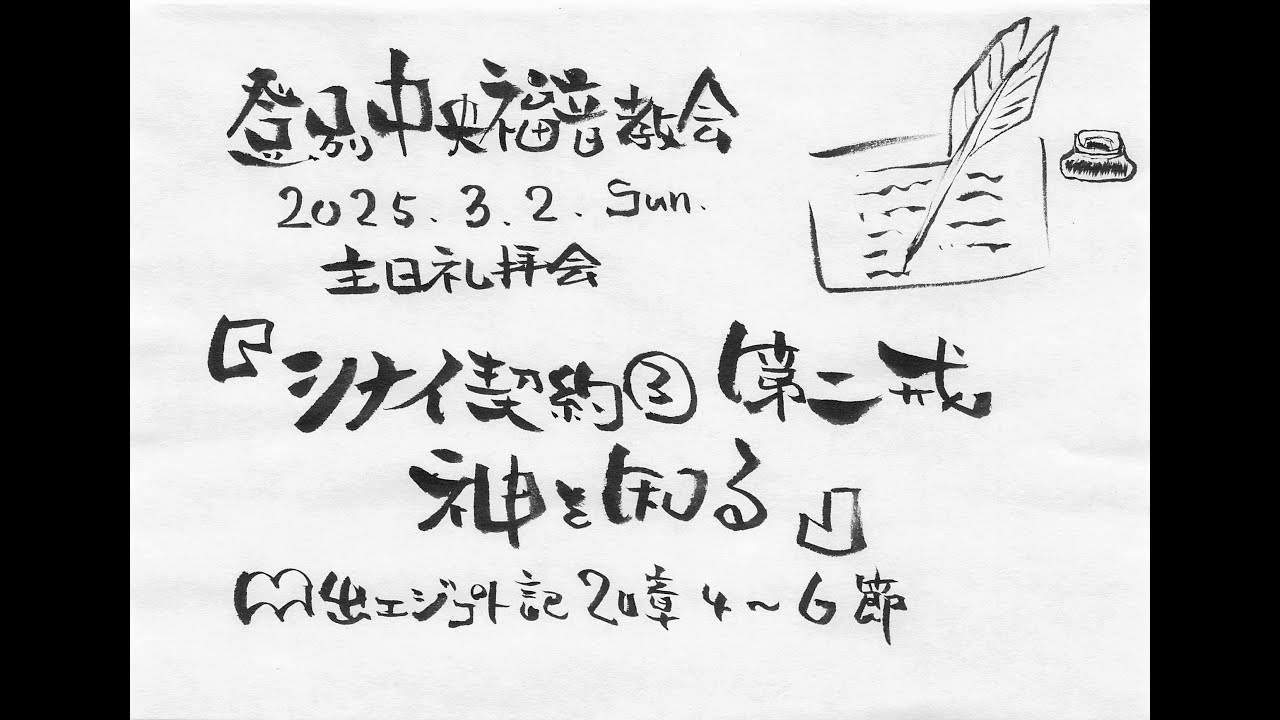 登別中央福音教会
2025.3.2.Sun.
主日礼拝会
『シナイ契約③ 第二戒
神を知る』
出エジプト記20章4～6節